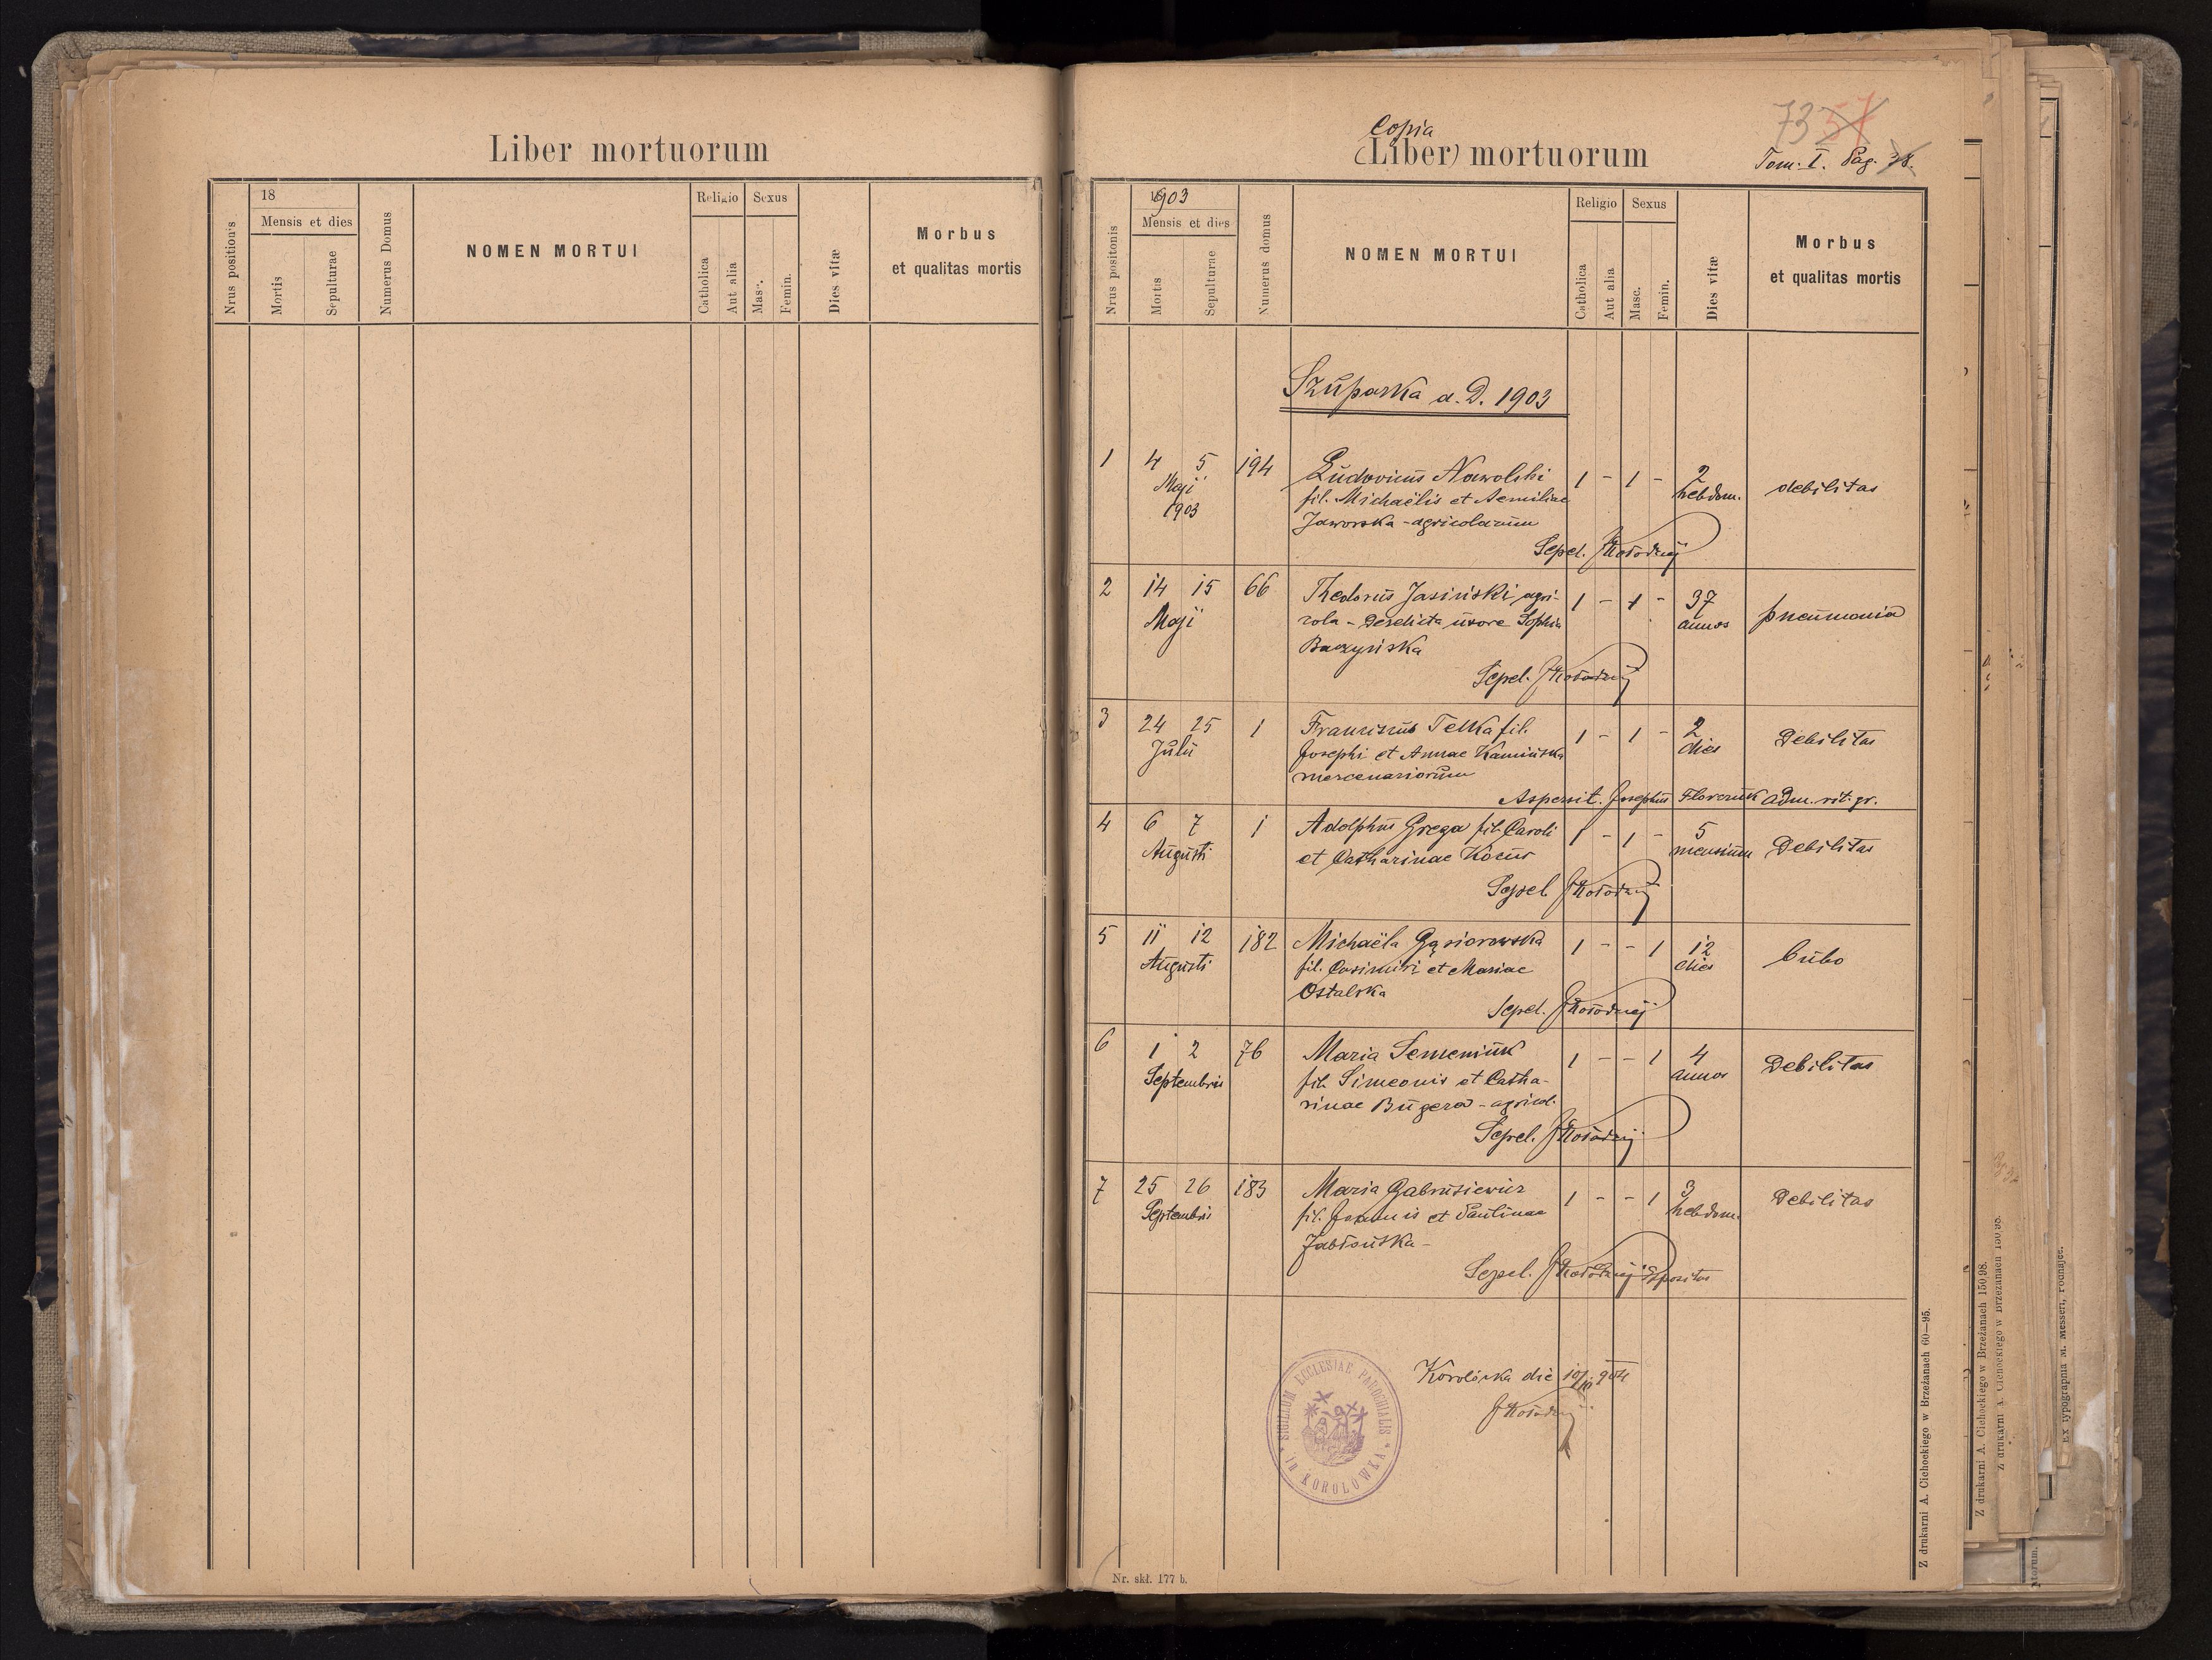 Liber mortuorum
Nrus positionis
18
Mensis et dies
Mortis
Sepulturae
Numerus Domus
NOMEN MORTUI
Religio
Catholica
Aut alia
Sexus
Masc.
Femin.
Dies vitæ
Morbus
et qualitas mortis
73 57
Copia
(Liber) mortuorum
Tom. I. Pag. 38.
Nrus positonis
1903
Mensis et dies
Mortis
Sepulturae
Numerus domus
NOMEN MORTUI
Religio
Catholica
Aut alia
Sexus
Masc.
Femin.
Dies vitæ
Morbus
et qualitas mortis
Szuparka a. D. 1903
1 4 5 194 Ludovicus Nawolski 1 - 1 - 2 debilitas
Maji fil. Michaëlis et Aemiliae hebdom.
1903 Jaworska - agricolarum
Sepel. JKołodzij
2 14 15 66 Thedorus Jasiński agri- 1 - 1 - 37 pneumonia
Maji cola - Derelicta uxore Sophia annos
Baczyńska
Sepel. JKołodzij
3 24 25 1 Franciscus Telka fil. 1 - 1 - 2 Debilitas
Julii Josephi et Annae Kamińska dies
mercenariorum
Aspersit. Josephus Florczuk adm. rit. gr.
4 6 7 1 Adolphus Grega fil. Caroli 1 - 1 - 5 Debilitas
Augusti et Catharinae Kocur mensium
Sepel. JKołodzij
5 11 12 182 Michaëla Gąsiorowska 1 - - 1 12
Augusti fil. Casimiri et Mariae dies
Ostalska
Sepel. JKołodzij
6 1 2 76 Maria Semeniuk 1 - - 1 4 Debilitas
Septembris fil. Simeonis et Catha- annos
rinae Bugera - agricol.
Sepel. JKołodzij
7 25 26 183 Maria Gabrusiewicz 1 - - 1 3 Debilitas
Septembris fil. Joannis et Paulinae hebdom.
Jabłońska -
Sepel. JKołodzij Expositus
Korolówka die 904
JKołodzij
SIGILLUM ECCLESIAE PAROCHIALIS
in KOROLÓWKA
Nr. skł. 177 b.
Z drukarni A. Cichockiego w Brzeżanach 60—95.
Z drukarni A. Cichockiego w Brzeżanach 150|98.
Z drukarni A. Cichockiego w Brzeżanach 150|98.